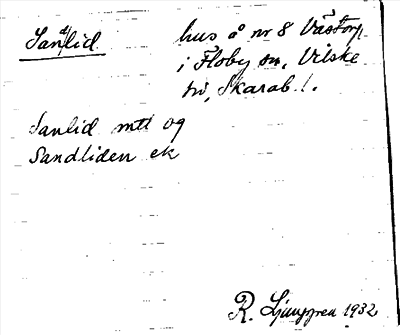 San(d)lid
hus å nr 8 Västorp
i Floby sn, Vilske
hd, Skarab. l.
Sanlid mtl og
Sandliden ek
R. Ljunggren 1932